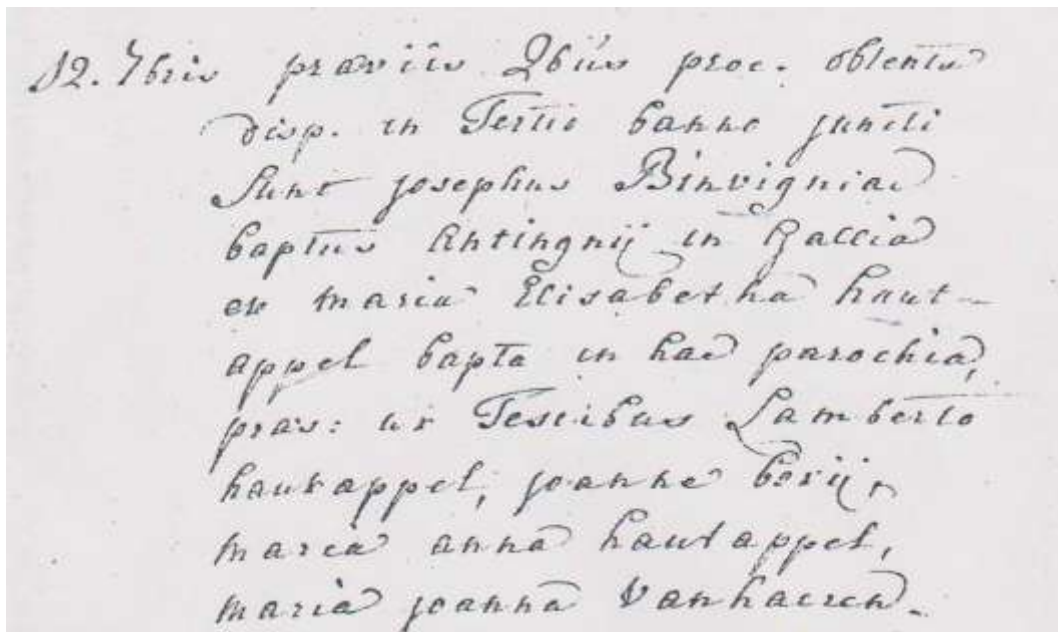 12. 7bris præviis Qbüs proc. obtenta
disp. in Tertio banno juncti
Sunt josephus Binvignia
baptus Antingnij in Gallia
et maria Elisabetha haut-
appel bapta in hac parochia,
præs: ut Testibus Lamberto
hautappel, joanne berij,
maria anna hautappel,
maria joanna Vanhaeren.